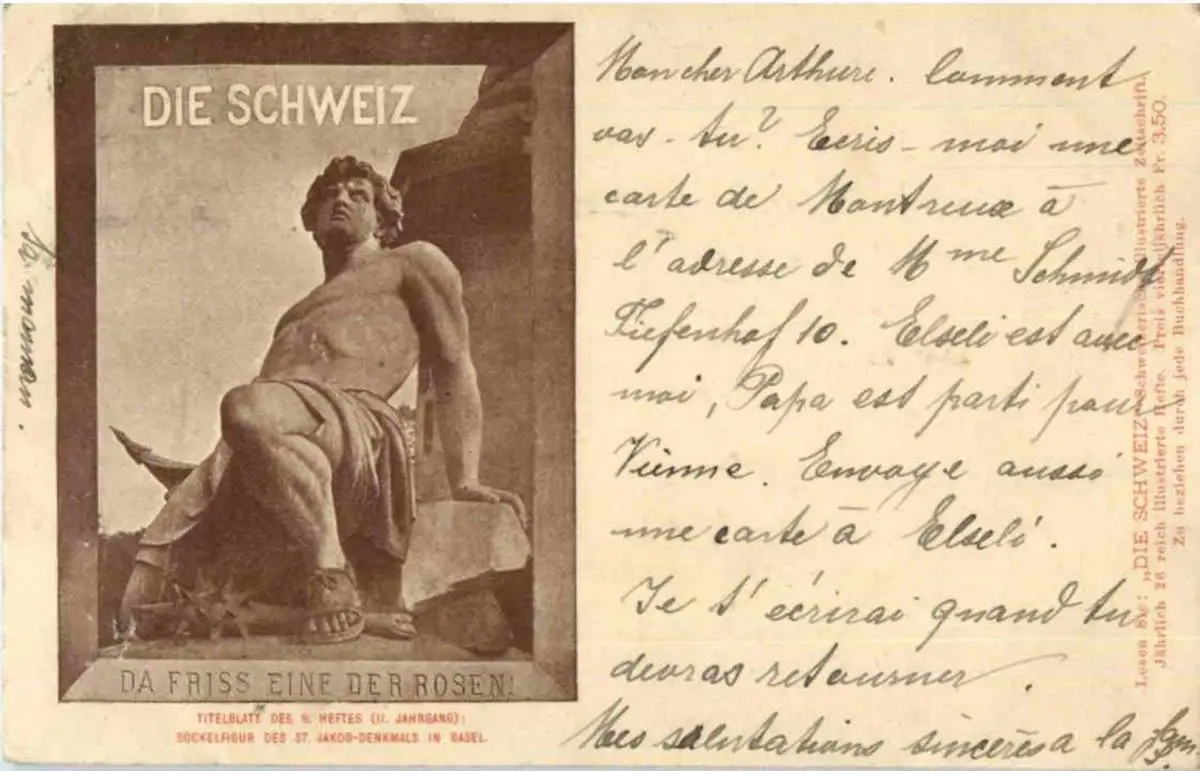 DIE SCHWEIZ
DA FRISS EINE DER ROSEN!
TITELBLATT DES 9. HEFTES (II. JAHRGANG):
SOCKELFIGUR DES ST. JAKOB-DENKMALS IN BASEL.
Mon cher Arthure. Comment
vas-tu? Ecris-moi une
carte de Montreux à
l'adresse de Mme Schmidt
Tiefenhof 10. Elseli est avec
moi, Papa est parti pour
Vienne. Envoye aussi
une carte à Elseli.
Je t'écrirai quand tu
devras retourner.
Mes salutations sincères à la fam.
Ta maman.
Lesen Sie: „DIE SCHWEIZ“ Schweizerische illustrierte Zeitschrift.
Jährlich 26 reich illustrierte Hefte. Preis vierteljährlich Fr. 3.50.
Zu beziehen durch jede Buchhandlung.